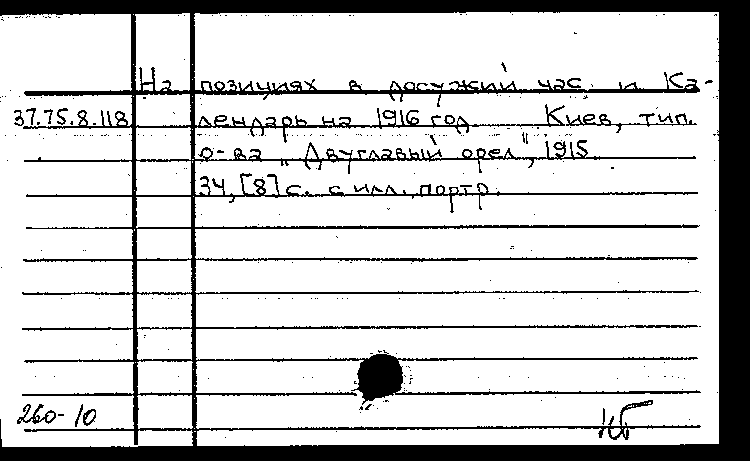 На позициях в досужий час и Ка-
37.75.8.118 лендарь на 1916 год. Киев, тип.
о-ва „Двуглавый орел", 1915.
34, [8] с. с илл., портр.
260-10
КБ